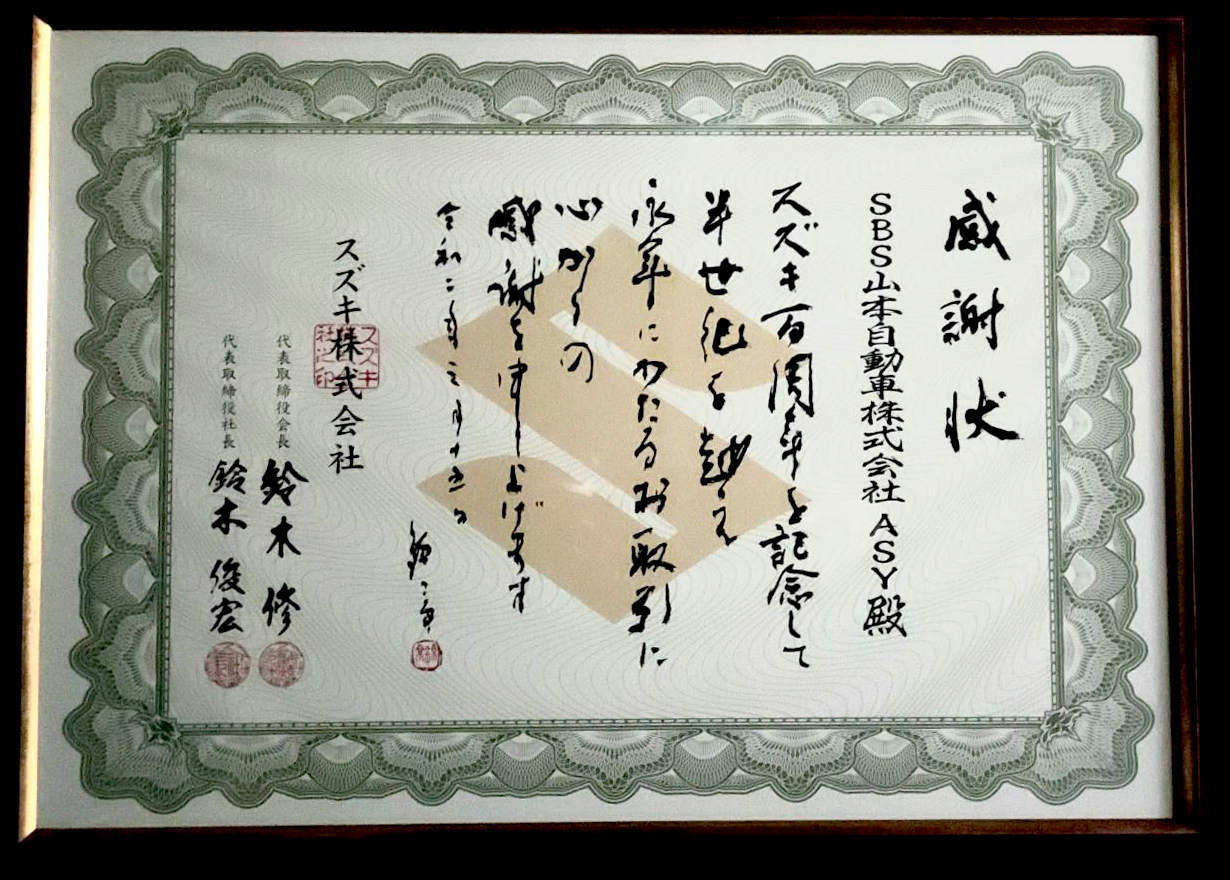 感謝状
SBS山本自動車株式会社 ASY 殿
スズキ百周年を記念して
半世紀を越え
永年にわたるお取引に
心からの
感謝を申し上げます
令和二年三月十五日
スズキ株式会社
スズキ株式会社之印
代表取締役会長 鈴木 修
代表取締役社長 鈴木 俊宏